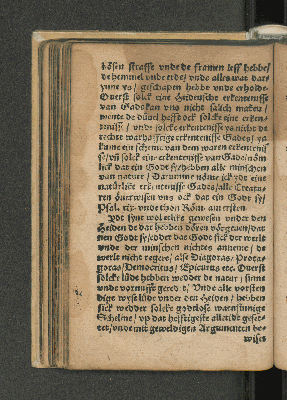 bösen straffe vnde de framen leff hebbe/
de hemmel vnde erde/ vnde alles wat dar
ynne ys/ geschapen hebbe vnde erholde.
Ouerst solck eine Heidensche erkentenisse
van Gade kan vns nicht salich maken/
wente de düuel hefft ock solcke eine erken-
tenisse/ vnde solcke erkentenisse ys nicht de
rechte warhafftige erkentenisse Gades/
kume ein scheme van dem waren erkentenis
se/ vñ solck ein erkentenisse van Gade
lick dat ein Godt sy/ hebben alle minschen
van natuer/ Darumme
natürlike erkentenisse Gades/ alle Creatu-
ren ouertwisen vns ock dat ein Godt sy/
Psal. vnde thon Röm. am ersten.
Jdt synt wol etlike gewesen vnder den
Heiden de dat hebben dören vörgeuen/ dat
neen Godt sy/ edder dat Godt sick der werlt
vnde der minschen nichtes anneme/ de
werlt nicht regere/ alse Diagoras/ Protag
goras/ Democritus/ Epicurus etc. Ouerst
solcke lüde hebben wedder de natur/ sinne
vnde vornufft geredet/ Vnde alle vorsten
dige wyse lüde vnder den Heiden/ hebben
sick wedder solcke godtlose wansinnige
Schelme/ vp dat hefftigeste alletidt geset-
tet/ vnde mit geweldigen Argumenten be-
wises